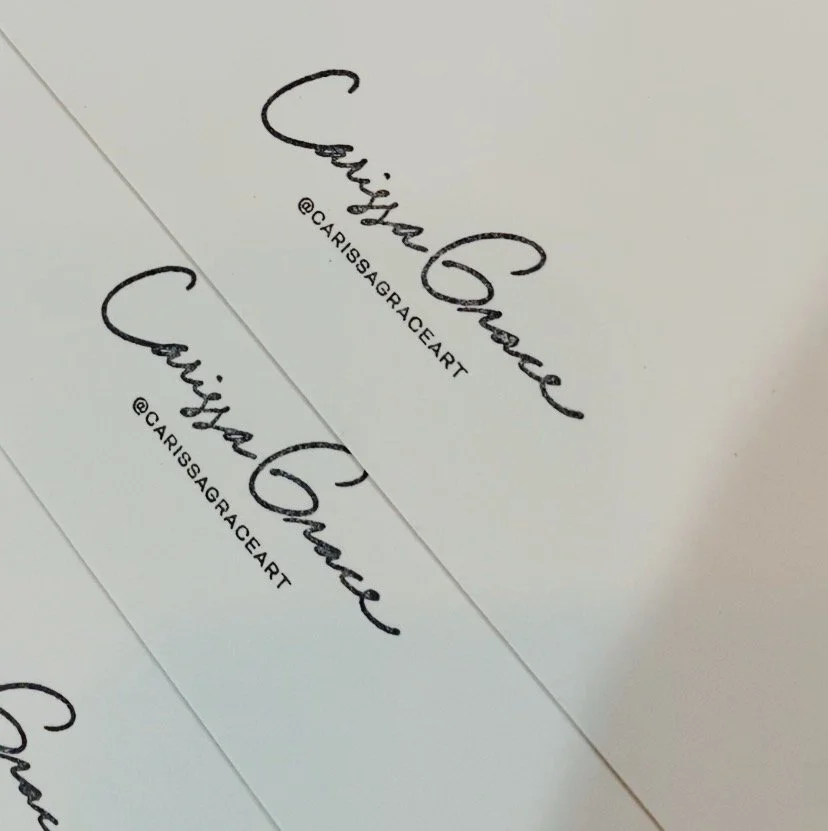 Carissa Grace
@CARISSAGRACEART
Carissa Grace
@CARISSAGRACEART
Grac